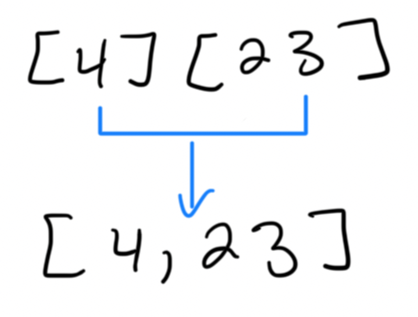 [4] [23]
[4,23]